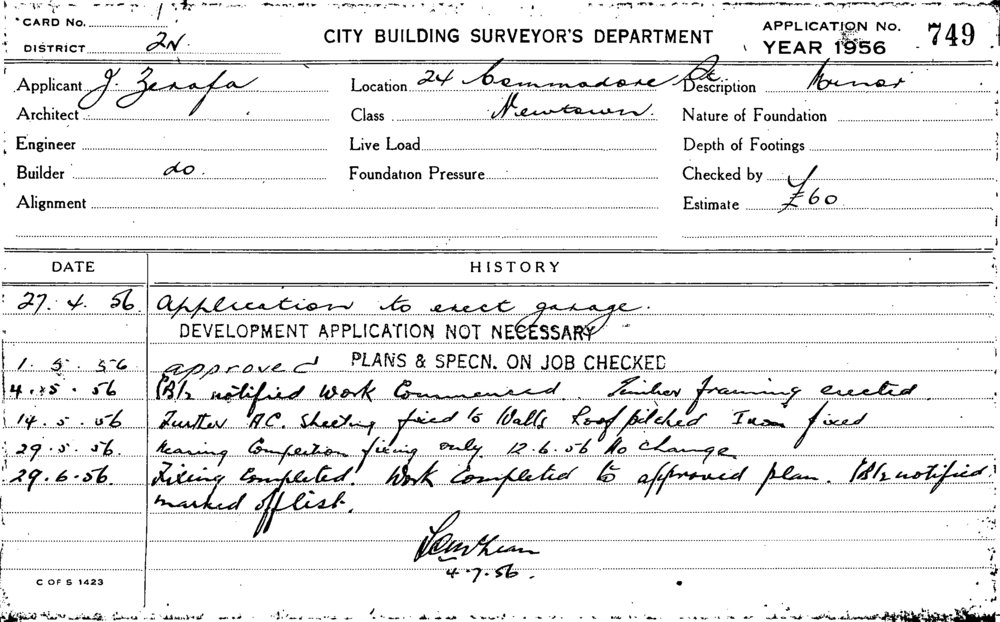 CARD No. 1
DISTRICT 2N.
CITY BUILDING SURVEYOR'S DEPARTMENT
APPLICATION No. 749
YEAR 1956
Applicant J. Zerafa Location 24 Commodore St. Description Minor
Architect Class Newtown. Nature of Foundation
Engineer Live Load Depth of Footings
Builder do. Foundation Pressure Checked by
Alignment Estimate £60
DATE HISTORY
27. 4. 56 Application to erect garage.
DEVELOPMENT APPLICATION NOT NECESSARY
1. 5. 56 approved PLANS & SPECN. ON JOB CHECKED
4. 5. 56 notified Work Commenced. Timber framing erected.
14. 5. 56 Further A.C. Sheeting fixed to Walls Roof pitched Iron fixed
29. 5. 56. Nearing Completion fixing only 12.6.56 No change
29.6.56. Fixing Completed. Work completed to approved plan. notified
marked off list.
4.7.56.
C OF S 1423